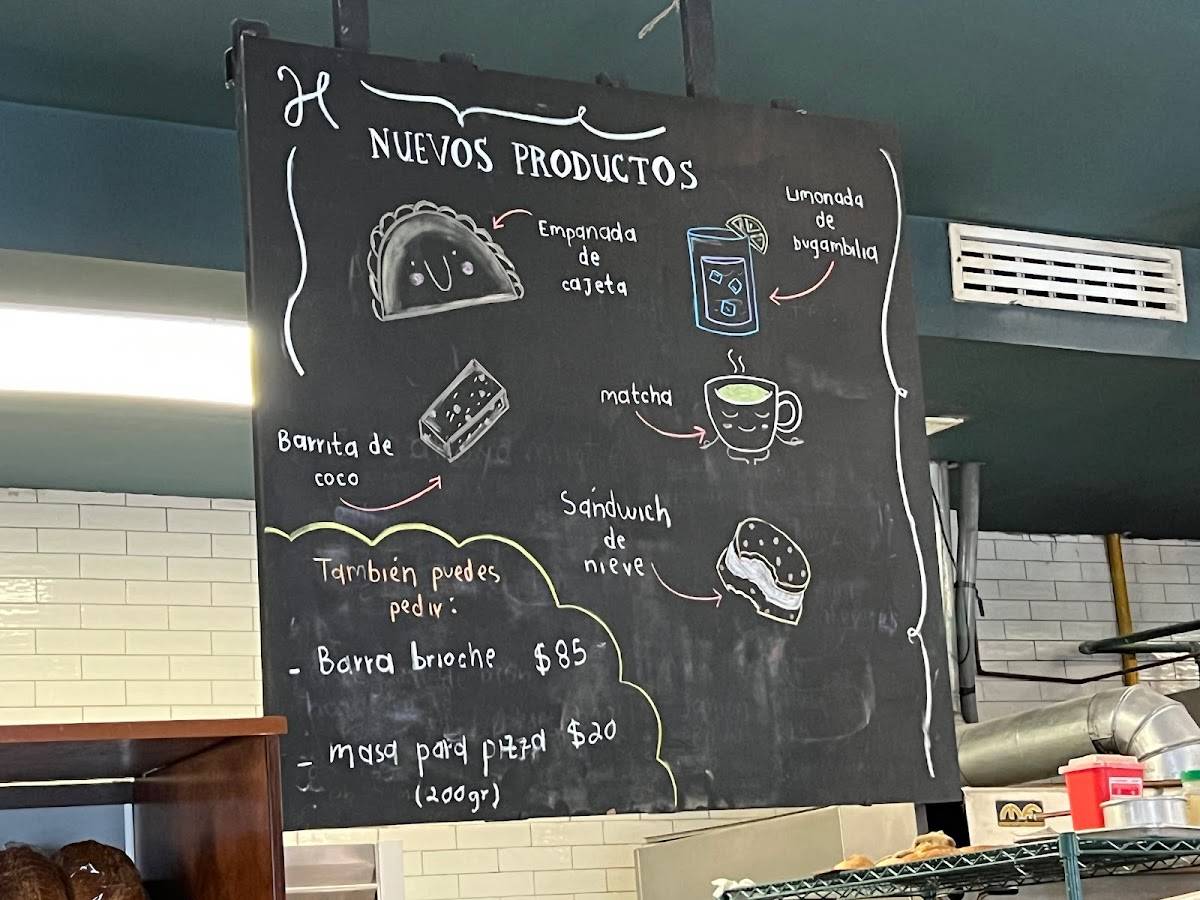 H
NUEVOS PRODUCTOS
Empanada
de
cajeta
Limonada
de
bugambilia
Barrita de
coco
matcha
Sándwich
de
nieve
También puedes
pedir:
- Barra brioche $85
- masa para pizza $20
(200gr)